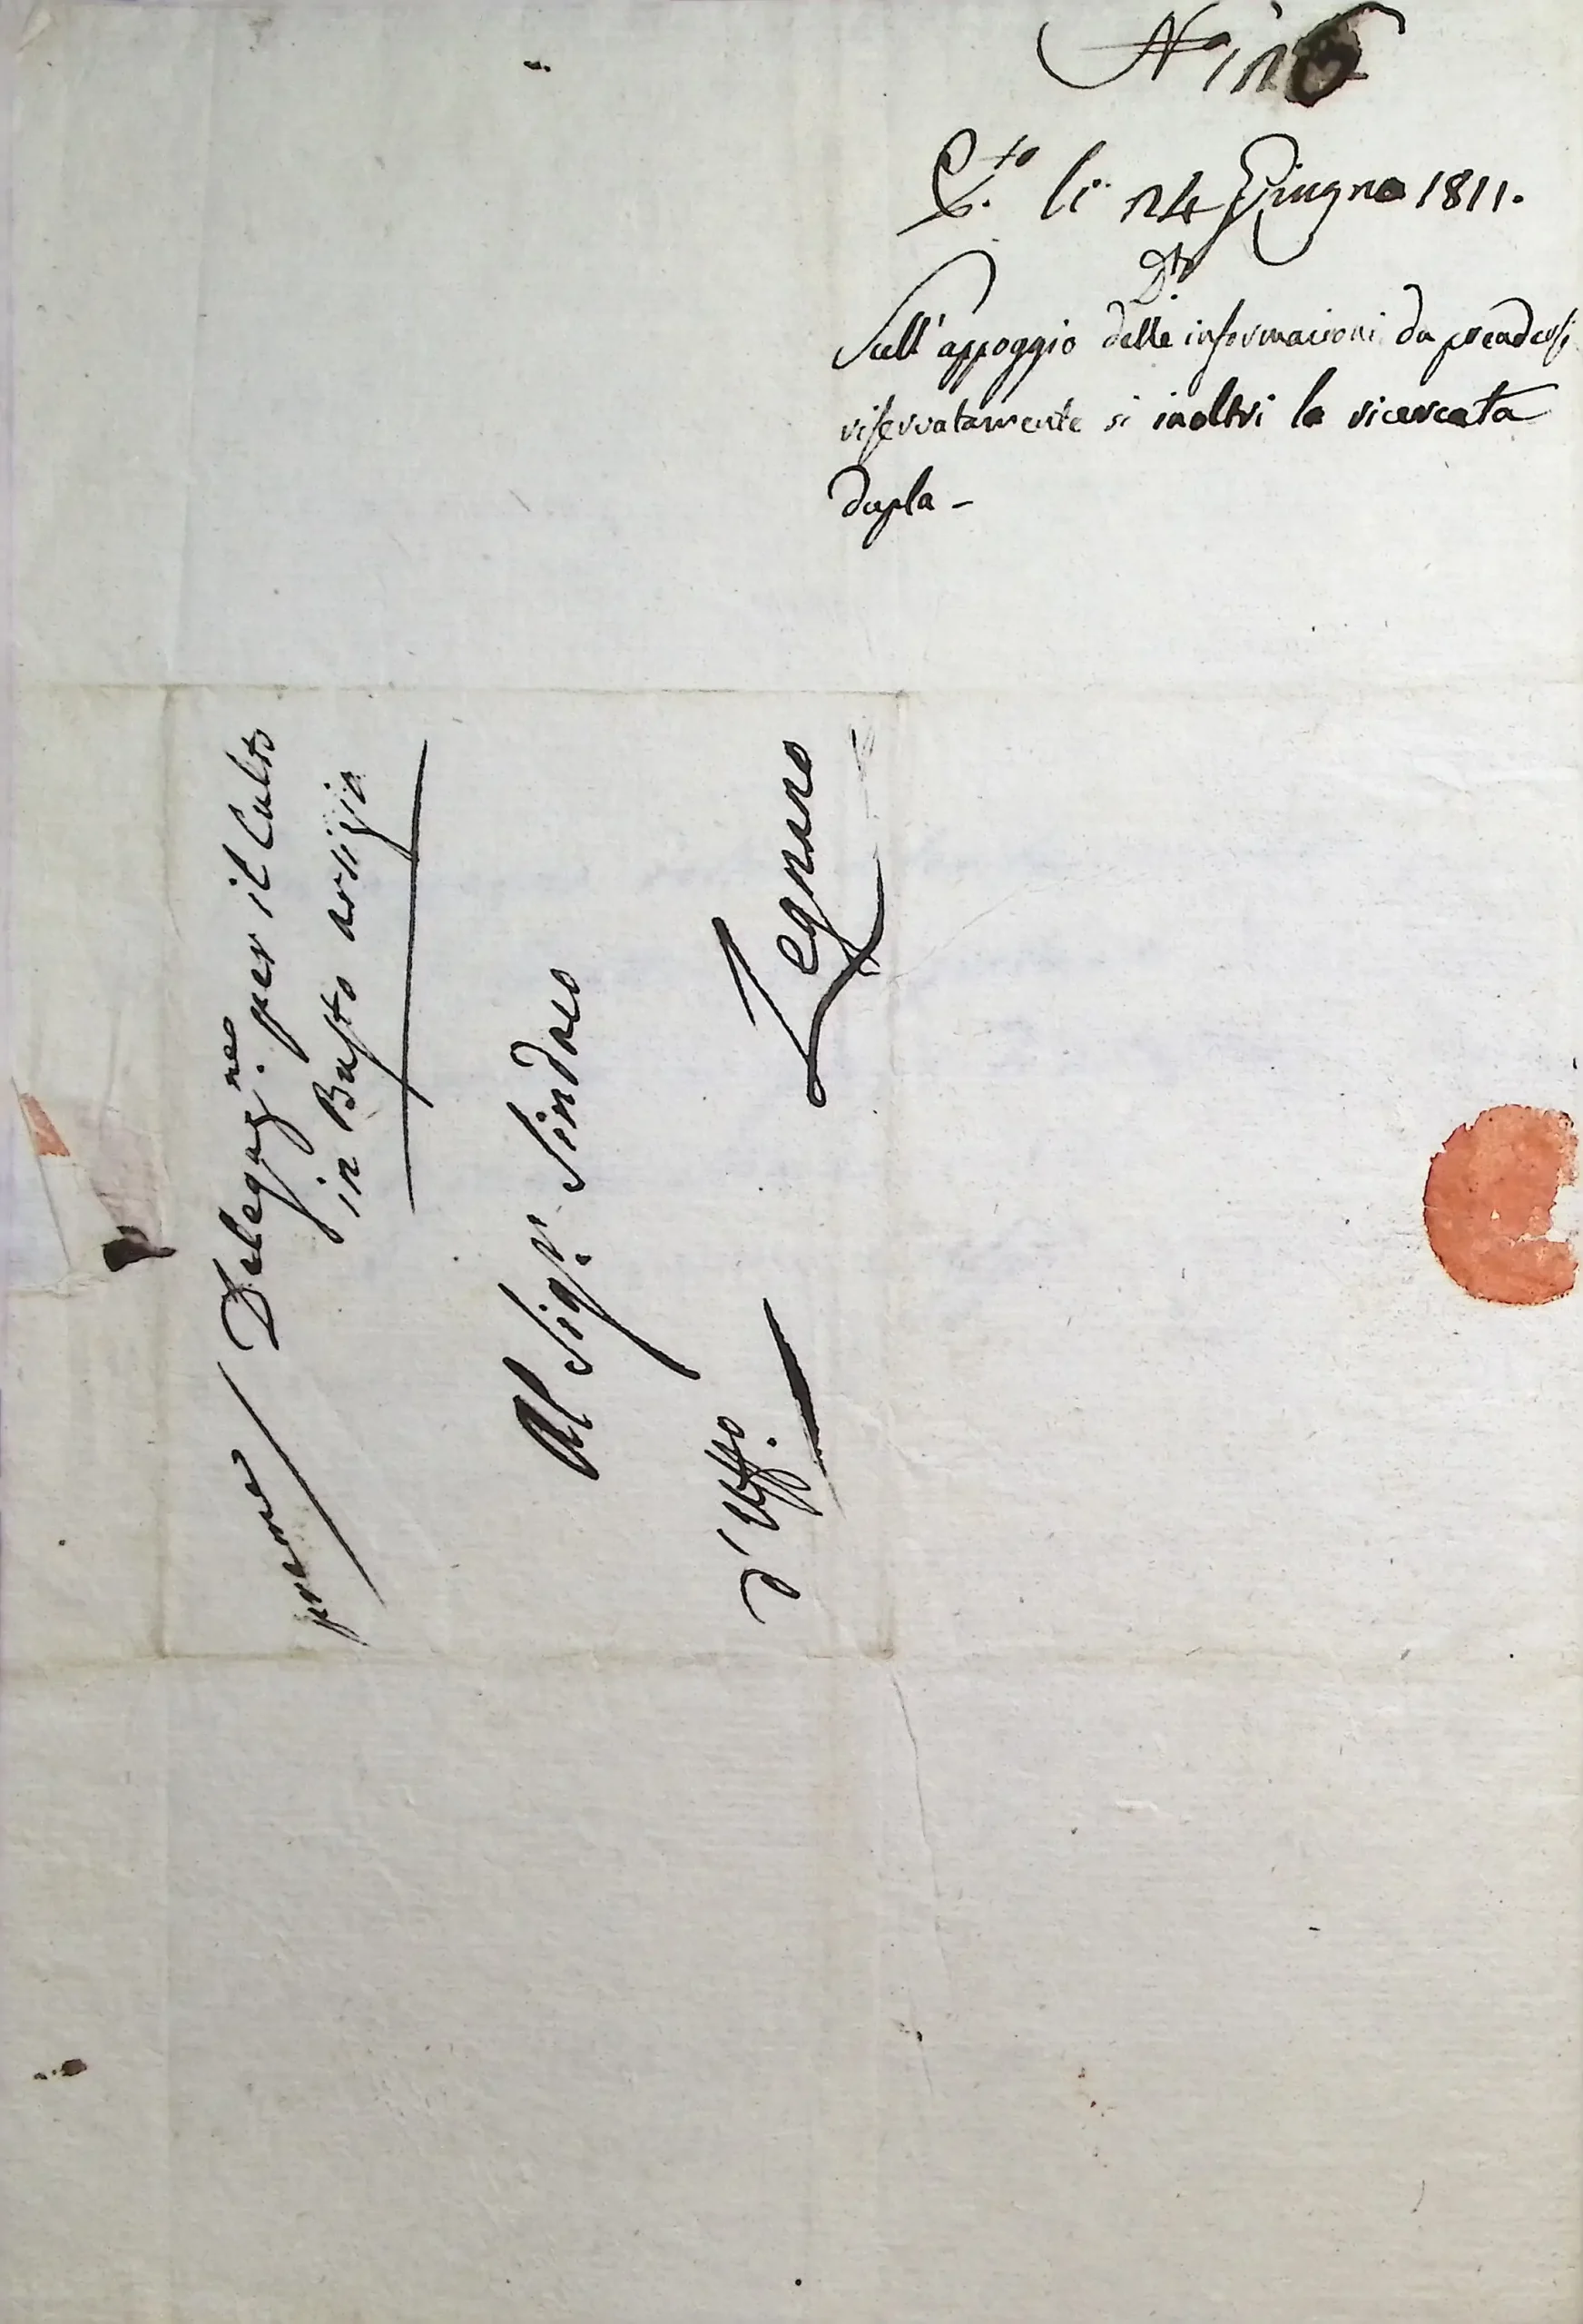 N°
li 24 Giugno 1811.
Sull'appoggio delle informazioni da prendersi
riservatamente si inoltri la ricercata
dupla -
preme / Delegaz.ne per il Culto
in Busto arsizio
Al Sig.r Sindaco
d'Uffo. Legnano